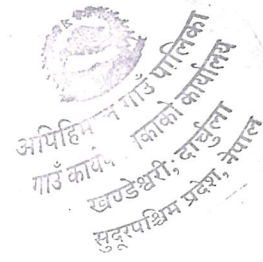 अपिहिम गाउँ पालिका
गाउँ कार्यपालिकाको कार्यालय
खण्डेश्वरी, दार्चुला
सुदूरपश्चिम प्रदेश, नेपाल